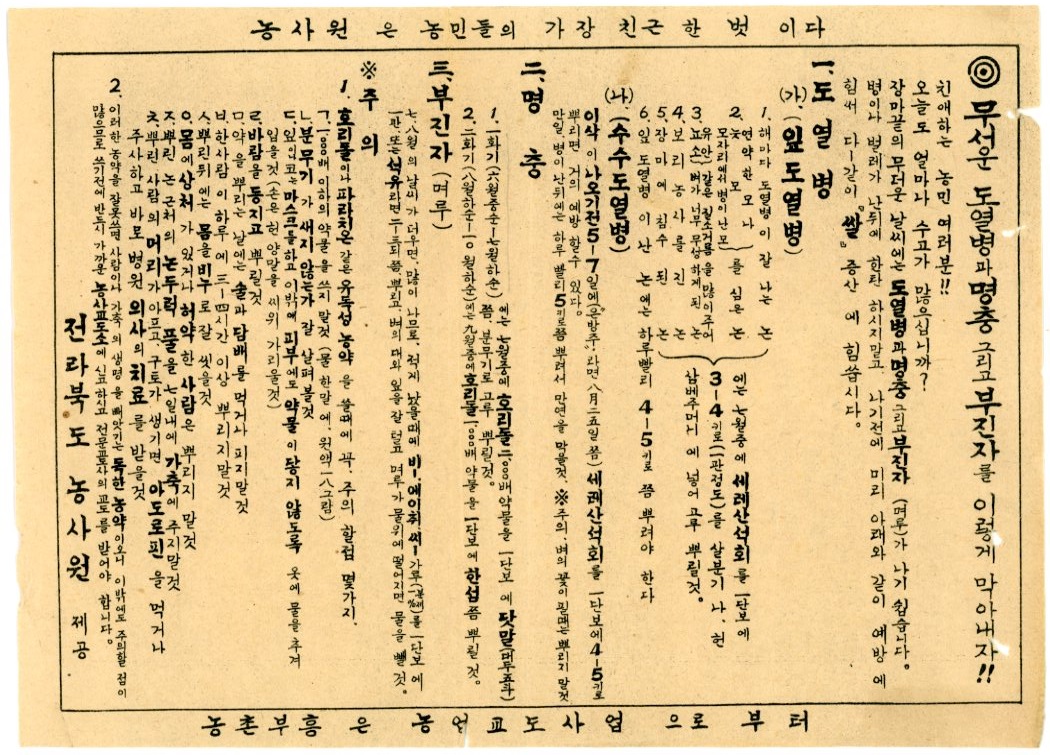 농사원은 농민들의 가장 친근한 벗이다
◎ 무서운 도열병과 명충 그리고 부진자를 이렇게 막아내자!!
친애하는 농민 여러분!!
오늘도 얼마나 수고가 많으십니까?
장마끝의 무더운 날씨에는 도열병과 명충 그리고 부진자 (며루)가 나기 쉽습니다.
병이나 벌레가 난뒤에 한탄 하시지말고 나기전에 미리 아래와 같이 예방에
힘써 다-같이 "쌀" 증산에 힘씁시다.
一. 도열병
(가) (잎도열병)
1. 해마다 도열병이 잘 나는 논
2. 연약한 모나
모자리에서 병이 난 모
늦모 모나 를 심은 논
3. 유안 같은 질소거름을 많이 주어
뇨소 벼가 너무 무상하게 된 논
4. 보리농사를 진 논
5. 장마에 침수된 논
에는 七월중에 세레산석회를 一단보에
3-4키로(一관정도)를 살분기나, 헌
삼베주머니에 넣어 고루 뿌릴것。
6. 잎도열병이 난 논에는 하루빨리 4-5키로쯤 뿌려야 한다
(나) (수수도열병)
이삭이 나오기전 5-7일에(은방주라면 八月二五일쯤) 세레산석회를 一단보에 4-5키로
뿌리면 거의 예방할수 있다。
만일 병이 난뒤에는 하루빨리 5키로쯤 뿌려서 만연을 막을것 ※주의. 벼의 꽃이 필때는 뿌리지 말것
二. 명충
1. 一화기(六월중순-七월하순)에는 七월중에 호리돌 二,000배약물을 一단보에 닷말(대두五과)
쯤, 분무기로 고루 뿌릴것。
2. 二화기(八월하순-一0월하순)에는 九월중에 호리돌 一,000배약물을 一단보에 한섬쯤 뿌릴것。
三. 부진자 (며루)
七,八월의 날씨가 더우면, 많이 나므로, 적게 났을때에 비-.에이취.씨-가루(분제)를 一단보에
一관. 또는 석유라면 二-三되쯤, 뿌리고, 벼의 대와 잎을 잘 털고 며루가 물위에 떨어지면 물을 뺄것。
※ 주의
1. 호리돌이나 파라치온 같은 유독성 농약을 쓸때에 꼭, 주의 할점 몇가지.
ㄱ. 一,000배 이하의 약물을 쓰지 말것 (물 한말에, 원액 一八그람)
ㄴ. 분무기가 새지 않는가 잘 살펴볼것
ㄷ. 입에는 마스크를하고 이밖에 피부에도 약물이 닿지 않도록 옷에 물을 추겨
입을것 (손은 헌 양말을 씨워 가리울것)
ㄹ. 바람을 등지고 뿌릴것
ㅁ. 약을 뿌리는 날에는 술과 담배를 먹거나 피지말것
ㅂ. 한사람이 하루에 三-四시간 이상 뿌리지말것
ㅅ. 뿌린뒤에는 몸을 비누로 잘 씻을것
ㅇ. 몸에 상처가 있거나 허약한 사람은 뿌리지 말것
ㅈ. 뿌린논 근처의 논두렁 풀을 七일내에 가축에 주지말것
ㅊ. 뿌린사람의 머리가 아프고, 구토가 생기면 아도로핀을 먹거나
주사하고 바로 병원 의사의 치료를 받을것
2. 이러한 농약을 잘못쓰면 사람이나 가축의 생명을 빼앗기는 독한 농약이오니 이밖에도 주의할 점이
많으므로 쓰기전에 반드시 가까운 농사교도소에 신고하시고 전문교도사의 교도를 받어야 합니다。
전라북도 농사원 제공
농촌부흥은 농업교도사업으로부터